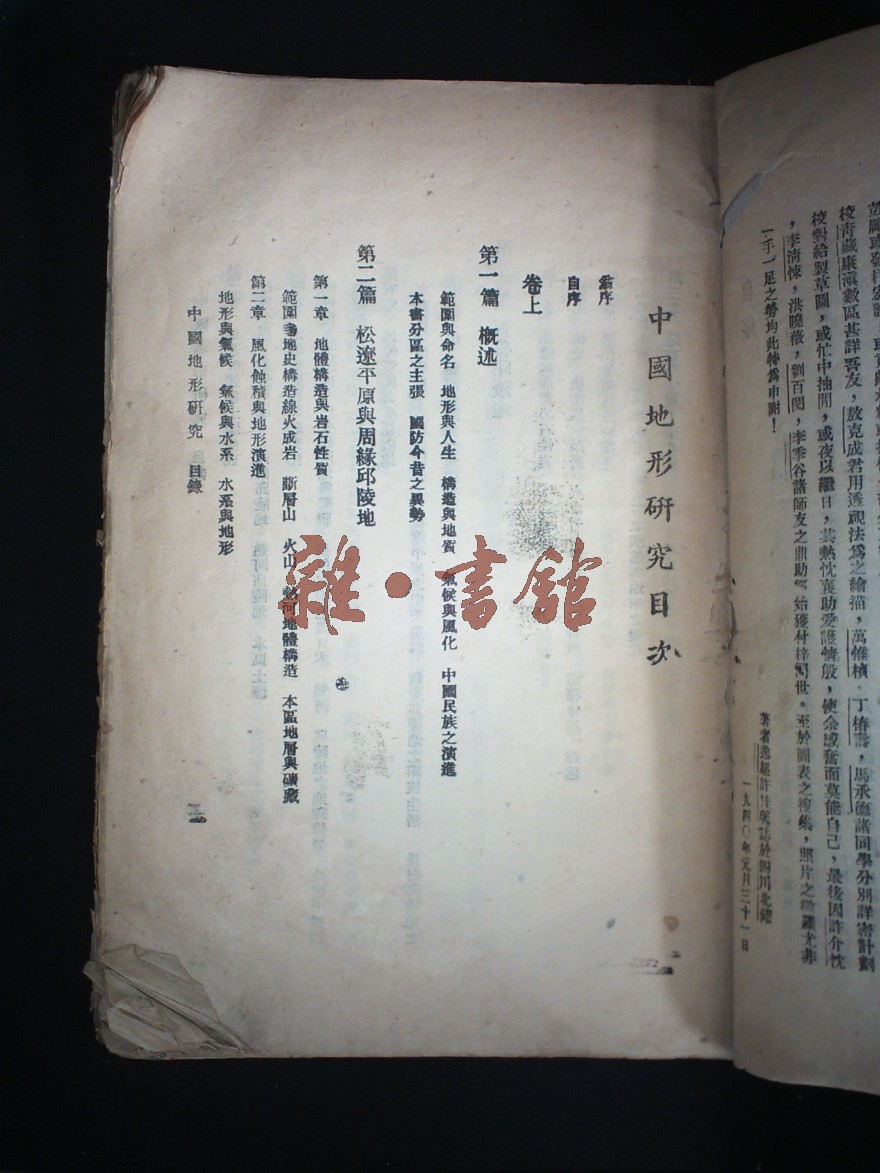 校青藏康滇數區甚詳吾友,敖克成君用透視法爲之繪描,萬惟楨,丁椿壽,馬承德諸同學分別詳密計劃
校對給製草圖,或忙中抽閒,或夜以繼日,其熱忱襄助愛護情殷,使余感奮而莫能自己,最後因許介忱
,李清悚,洪曉薇,劉百閔,李季谷諸師友之鼎助,始獲付梓問世。至於圖表之搜集,照片之徵羅尤非
一手一足之勞均此特爲申謝!
於四川北碚
一九四〇年元月三十一日
中國地形研究目次
翁序
自序
卷上
第一篇 概述
範圍與命名 地形與人生 構造與地質 氣候與風化 中國民族之演進
本書分區之主張 國防今昔之異勢
第二篇 松遼平原與周緣邱陵地
第一章 地體構造與岩石性質
範圍 地史構造線火成岩 斷層山 火山 熱河地體構造 本區地層與礦藏
第二章 風化蝕積與地形演進
地形與氣候 氣候與水系 水系與地形
中國地形研究 目錄
雜·書館